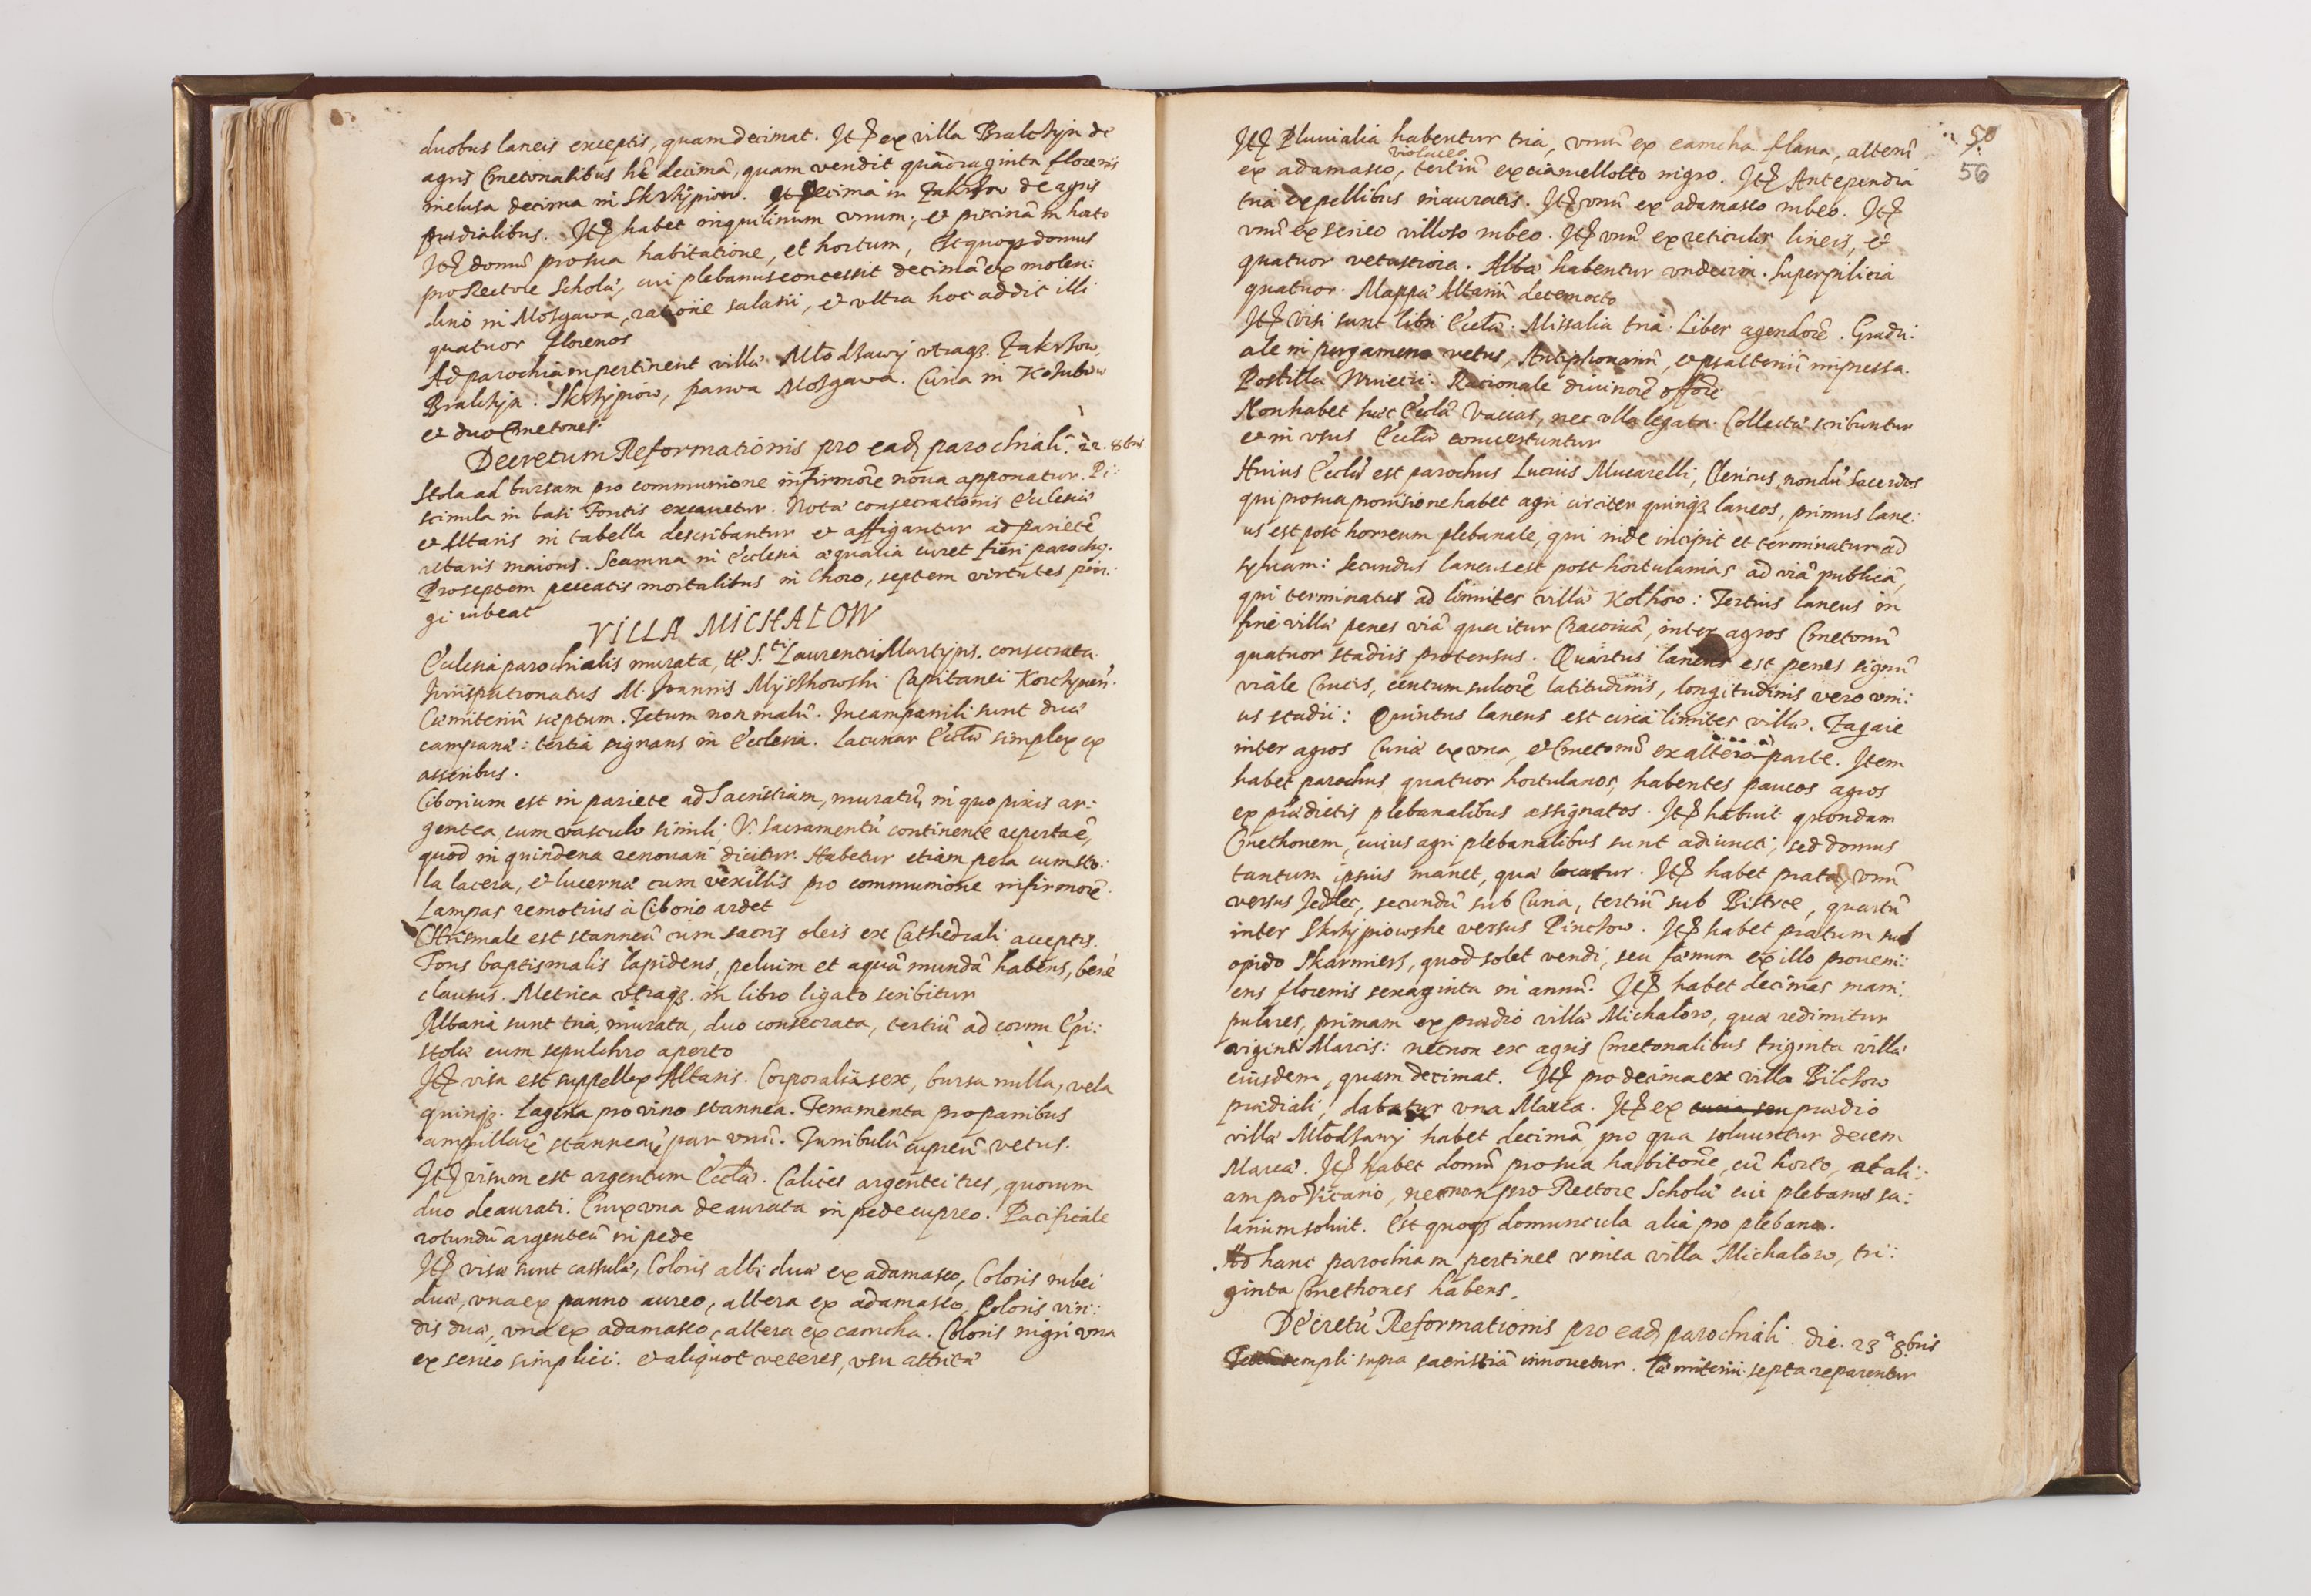 duobus laneis exceptis, quam decimat. Itẽ ex villa Bralchyn de
agris Cmetonalibus hẽ decimã, quam vendit quadraginta florenis
inclusa decima in Skrhÿpiow. Et decima in Zakrhow de agris
prædialibus. Itẽ habet inquilinum vnum; et piscinã in horto
Itẽ domũ pro sua habitatione, et hortum, Est quoqз domus
pro Rectore Scholæ, cui plebanus concessit decimã ex molen:
dino in Mosgawa, ratione salarii, et vltra hoc addit illi
quatuor florenos
Ad parochiam pertinent villæ. Młodsawÿ vtraqз. Zakrhow,
Bralchyn. Skrhÿpiow, parua Mosgawa. Curia in Kosubow
et duo Cmetones.
Decretum Reformationis pro eadẽ parochiali. 22. 8bris
Stola ad bursam pro communione infirmorẽ noua apponatur. Pi:
scinula in basi Fontis excauetur. Nota consecrationis Ecclesiæ
et Altaris in tabella describantur et affigantur ad parietẽ
altaris maioris. Scamna in Ecclesia æqualia curet fieri parochꝰ.
Pro septem peccatis mortalibus in Choro, septem virtutes pin:
gi iubeat
VILLA MICHALOW
Ecclesia parochialis murata, tt. S.ti Laurentii Martyris. consecrata.
Iurispatronatus M. Joannis Mÿskhowski Capitanei Korchynẽn.
Cæmiteriũ septum. Tetum non malũ. In campanili sunt duæ
campanæ: tertia signans in Ecclesia. Lacunar Ecclæ simplex ex
asseribus.
Ciborium est in pariete ad Sacristiam, muratũ, in quo pixis ar:
gentea, cum vasculo simili, V. Sacramentũ continente reperta ẽ,
quod in quindena renouari dicitur. Habetur etiam pera cum sto:
la lacera, et lucerna cum vexillis pro communione infirmorẽ.
Lampas remotius à Ciborio ardet
Chrismale est stanneũ cum sacris oleis ex Cathedrali acceptis.
Fons baptismalis lapideus, peluim et aquã mundã habens, benè
clausus. Metrica vtraqз. in libro ligato scribitur
Altaria sunt tria, murata, duo consecrata, tertiũ ad cornu Epi:
stolæ cum sepulchro aperto
Itẽ visa est suppellex Altaris. Corporalia sex, bursa nulla, vela
quinqз. Lagena pro vino stannea. Fenamenta pro panibus
ampullarẽ stannearẽ par vnũ. Turribulũ cupreũ vetus.
Itẽ visum est argentum Ecclæ. Calices argentei tres, quorum
duo deaurati. Crux vna deaurata in pede cupreo. Pacificale
rotundũ argenteũ in pede
Itẽ visæ sunt casulæ, Coloris albi duæ ex adamasco, Coloris rubei
duæ, vna ex panno aureo, altera ex adamasco, Coloris viri:
dis duæ, vna ex adamasco, altera ex camcha. Coloris nigri vna
ex serico simplici. et aliquot veteres, vsu attritæ
50
56
Itẽ Pluuialia habentur tria, vnũ ex camcha flaua, alterũ
violaceo
ex adamasco, tertiũ ex ciamellotto nigro. Itẽ Antependia
tria ex pellibus inauratis. Itẽ vnũ ex adamasco rubeo. Itẽ
vnũ ex serico villoso rubeo. Itẽ vnũ ex reticulis lineis, et
quatuor vetustiora. Albæ habentur vndecim. Superpilicia
quatuor. Mappæ Altariũ decemocto
Itẽ visi sunt libri Ecclæ. Missalia tria. Liber agendorẽ. Gradu:
ale in pergameno vetus, Antiphonariũ, et psalteriũ impressa.
Postilla. Racionale diuinorẽ offorẽ
Non habet hæc Eccla Vaccas, nec vlla legata. Collectæ scribuntur
et in vsus Ecclæ conuertuntur
Huius Ecclæ est parochus Lucius Mucarelli, Clericus, nondũ Sacerdos
qui pro sua prouisione habet agri circiter quinqз laneos, primus lane:
us est post horreum plebanale, qui inde incipit et terminatur ad
syluam: Secundus laneus est post hortulanias ad viã publicã,
qui terminatur ad limites villæ Kolhow: Tertius laneus in
fine villæ penes viã qua itur Cracouiã, inter agros Cmetonũ
quatuor stadiis protensus. Quartus laneus est penes signũ
viale Crucis, centum sulcorẽ latitudinis, longitudinis vero vni:
us stadii: Quintus laneus est circa limites villæ. Zagaie
inter agros Curiæ ex vna, et Cmetonũ ex altera parte. Item
habet parochus, quatuor hortulanos, habentes paucos agros
ex prædictis plebanalibus assignatos. Itẽ habuit quondam
Cmethonem, cuius agri plebanalibus sunt adiuncti; sed domus
tantum ipsius manet, quæ locatur. Itẽ habet prata, vnũ
versus Jedlec, secundũ sub Curia, tertiũ sub Bistrce, quartũ
inter Skrhÿpiowske versus Pinchow. Itẽ habet pratum sub
opido Skarmiers, quod solet vendi, seu fænum ex illo proueni:
ens florenis sexaginta in annũ. Itẽ habet decimas mani:
pulares, primam ex prædio villæ Michalow, quæ redimitur
viginti Marcis: necnon ex agris Cmetonalibus triginta villæ
eiusdem, quam decimat. Itẽ pro decima ex villa Bilchow
prædiali, dabatur vna Marca. Itẽ ex curia seu prædio
villæ Młodsawÿ habet decimã, pro qua soluuntur decem
Marcæ. Itẽ habet domũ pro sua habitõne, cũ horto, et ali:
am pro Vicario, necnon pro Rectore Scholæ cui plebanus sa:
larium soluit. Est quoqз domuncula alia pro plebano.
Ad hanc parochiam pertinet vnica villa Michalow, tri:
ginta Cmethones habens.
Decretũ Reformationis pro eadẽ parochiali. die. 23ª 8bris
Tectũ templi supra sacristiã innouetur. Cæmiterii septa reparentur